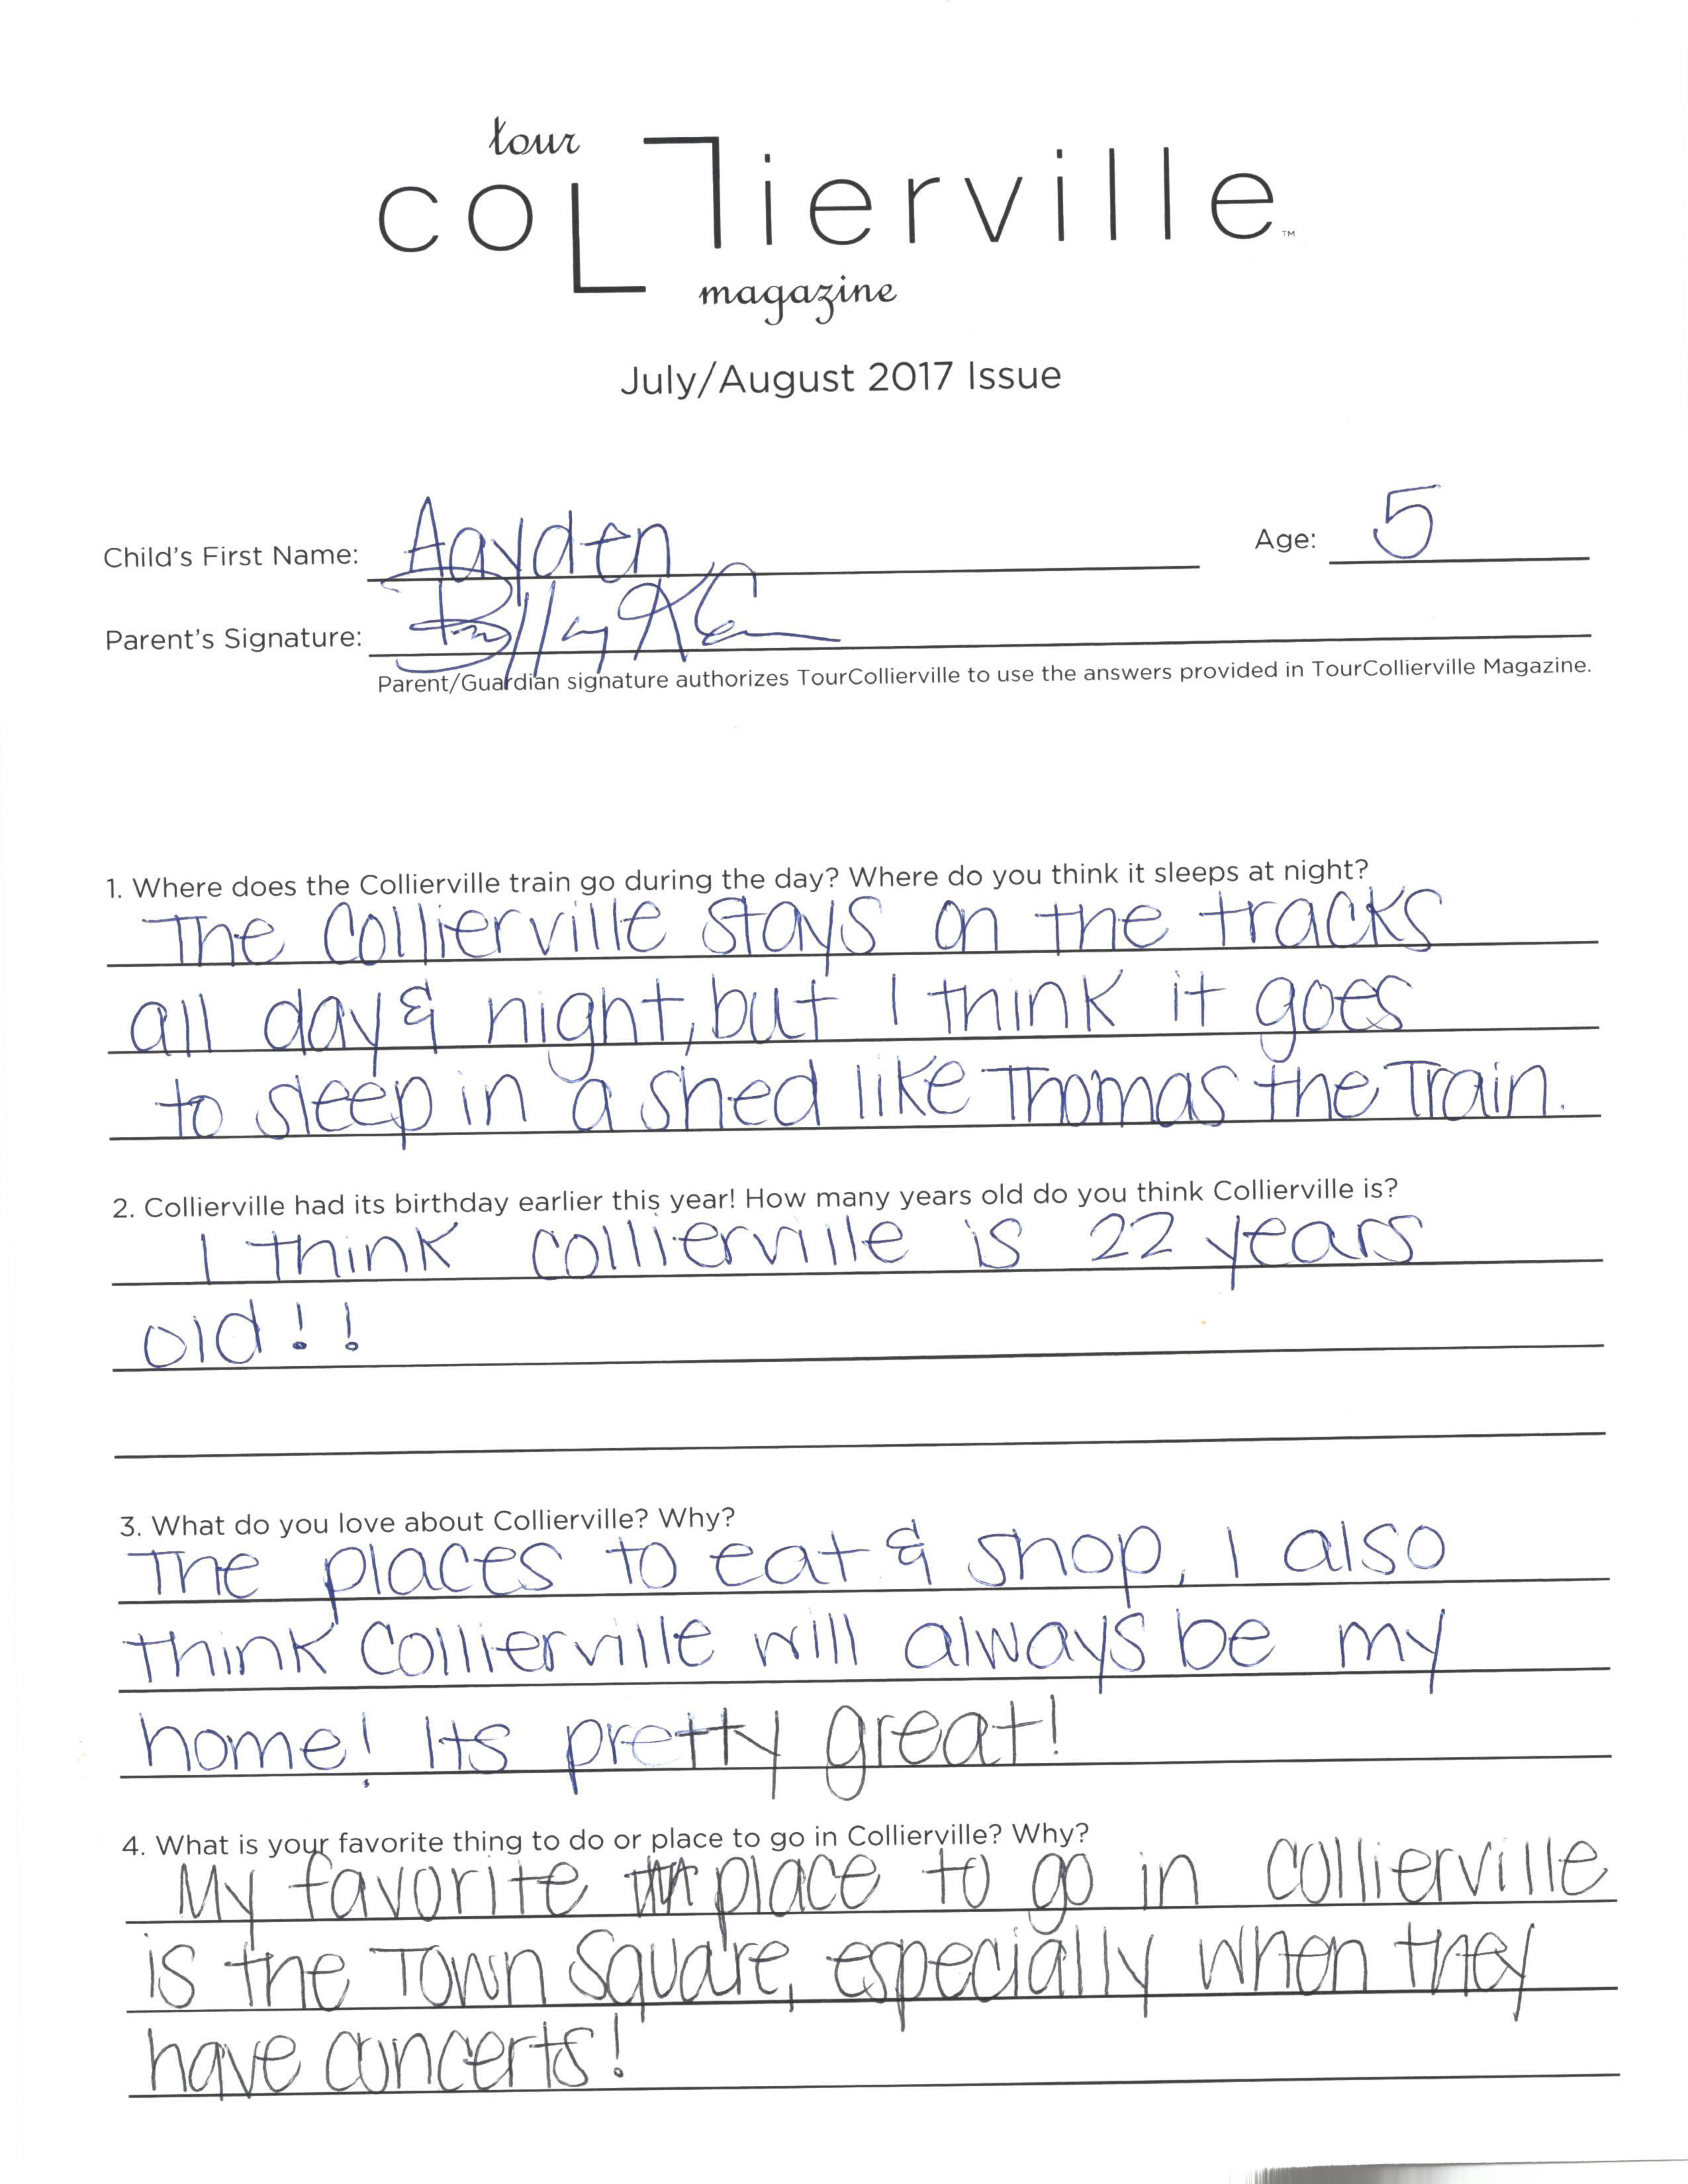 tour
collierville
TM
magazine
July/August 2017 Issue
Child's First Name: Aayden Age: 5
Parent's Signature:
Parent/Guardian signature authorizes TourCollierville to use the answers provided in TourCollierville Magazine.
1. Where does the Collierville train go during the day? Where do you think it sleeps at night?
The Collierville stays on the tracks
all day & night, but I think it goes
to sleep in a shed like Thomas the Train.
2. Collierville had its birthday earlier this year! How many years old do you think Collierville is?
I think collierville is 22 years
old!!
3. What do you love about Collierville? Why?
The places to eat & shop, I also
think Collierville will always be my
home! Its pretty great!
4. What is your favorite thing to do or place to go in Collierville? Why?
My favorite place to go in collierville
is the Town Square, especially when they
have concerts!